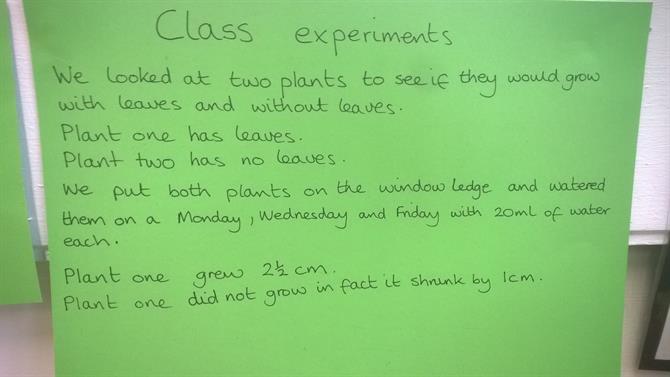 Class experiments
We looked at two plants to see if they would grow
with leaves and without leaves.
Plant one has leaves.
Plant two has no leaves.
We put both plants on the window ledge and watered
them on a Monday, Wednesday and Friday with 20ml of water
each.
Plant one grew 2½ cm.
Plant one did not grow in fact it shrunk by 1cm.